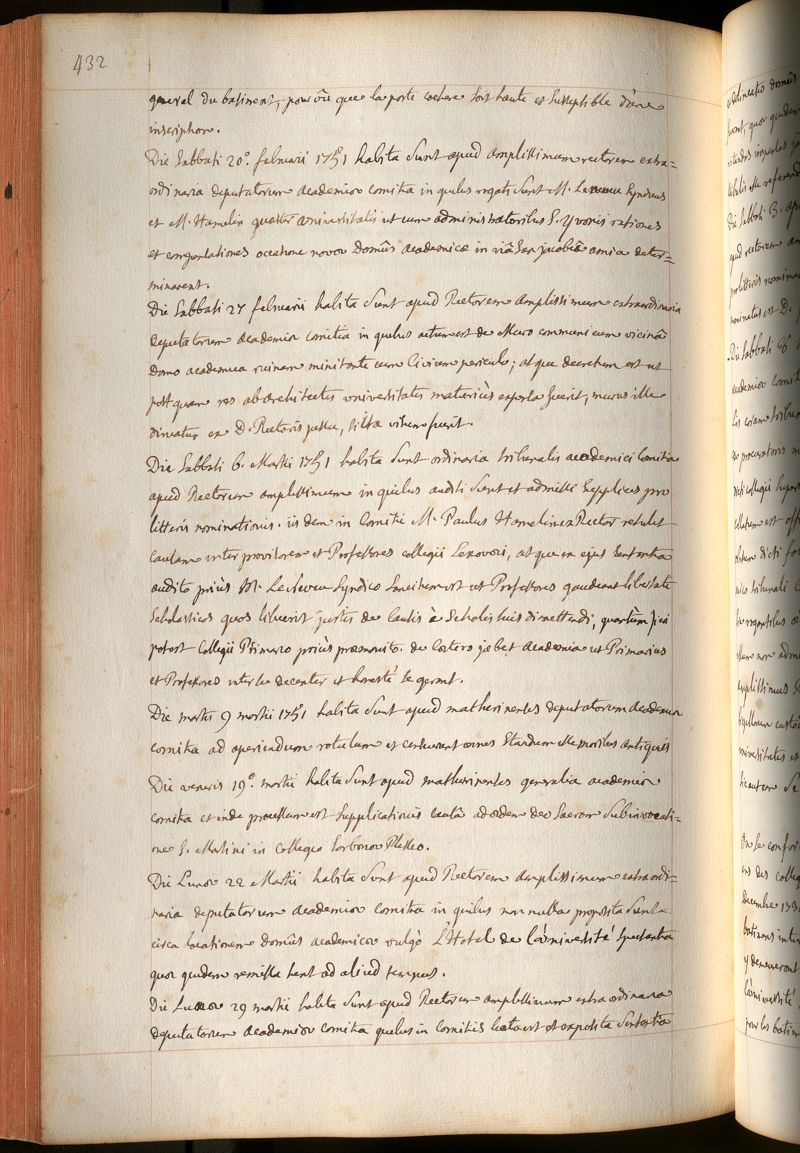 432
general du batiment, pourvû que la porte cochere soit haute et susceptible d'une
inscription.
Die Sabbati 20°. februarii 1751 habita sunt apud amplissimum rectorem extra=
ordinaria deputatorum academiæ comitia in quibus rogati sunt M. Leneveu Syndicus
et M. Hamelin quæstor universitatis ut cum administratoribus S. Yvonis rationes
et occasione novæ Domûs Academicæ in viâ San jacobæâ amica deter=
minarent.
Die Sabbati 27 februarii habita sunt apud Rectorem amplissimum extraordinaria
deputatorum academiæ comitia in quibus actum est de Muro communi cum vicinâ
domo academica ruinam minitante cum Civium periculo; atque decretum est ut
postquam res ab architectis universitatis maturiùs expensa fuerit, murus ille
diruatur ex D. Rectoris jussu, si ita visum fuerit.
Die Sabbati 6. Martii 1751 habita sunt ordinaria tribunalis academici Comitia
apud Rectorem amplissimum in quibus auditi sunt et admissi supplices pro
litteris nominationis. iisdem in Comitiis M. Paulus Hamelin exRector retulit
Causam inter provisorem et Professores collegii Lexovæi, atque ex ejus sententia
audito priùs M. Leneveu Syndico sancitum est ut Professores gaudeant libertate
Scholasticos quos libuerit justis de Causis è Scholis suis dimittendi, quantùm fieri
potest Collegii Primario priùs præmonito. de Cætero jubet Academia ut Primarius
et Professores inter se decenter et honestè se gerant.
Die martis 9 martii 1751 habita sunt apud mathurinenses deputatorum academiæ
comitia ad aperiendum rotulum et censuerunt omnes standum esse moribus antiquis
Die veneris 19°. martii habita sunt apud mathurinenses generalia academiæ
comitia et inde processum est supplicationis causâ ad ædem deo sacram sub invocati=
one S. Martini in collegio Sorbonæ Plesseo.
Die Lunæ 22 Martii habita sunt apud Rectorem amplissimum extraordi=
naria deputatorum academiæ comitia in quibus non nulla proposita sunt
circa locationem domûs academicæ vulgò L'Hotel de L'université spectantia
quæ quidem remissa sunt ad aliud tempus.
Die Lunæ 29 martii habita sunt apud Rectorem amplissimum extraordinaria
deputatorum academiæ comitia quibus in comitiis lecta est et exposita sententia